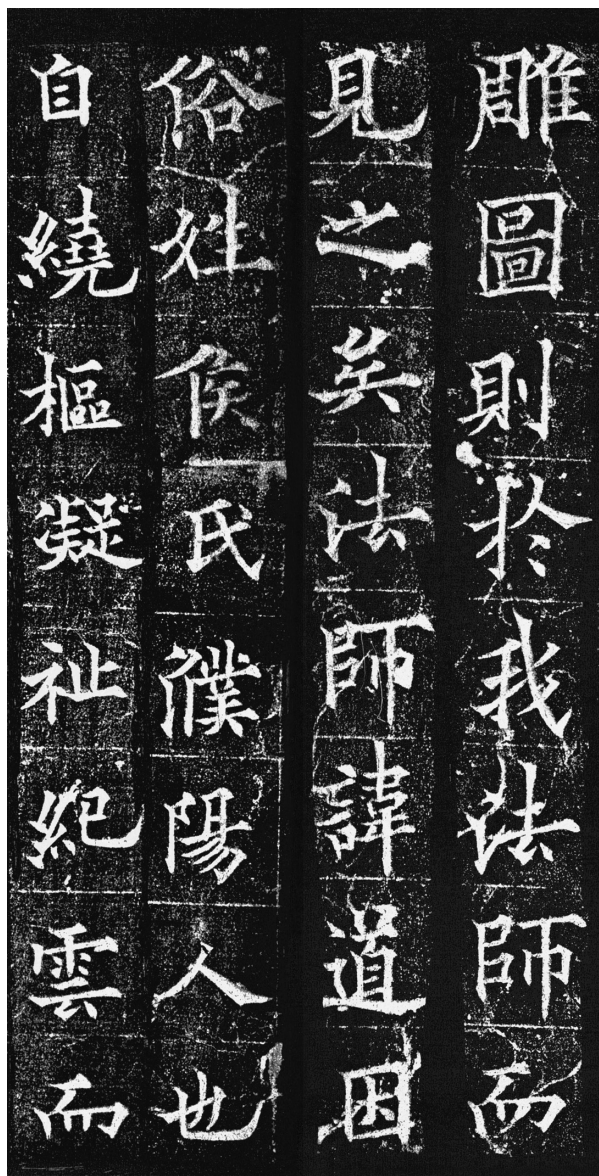 雕圖則於我法師而
見之矣法師諱道因
俗姓侯氏濮陽人也
自繞樞凝祉紀雲而